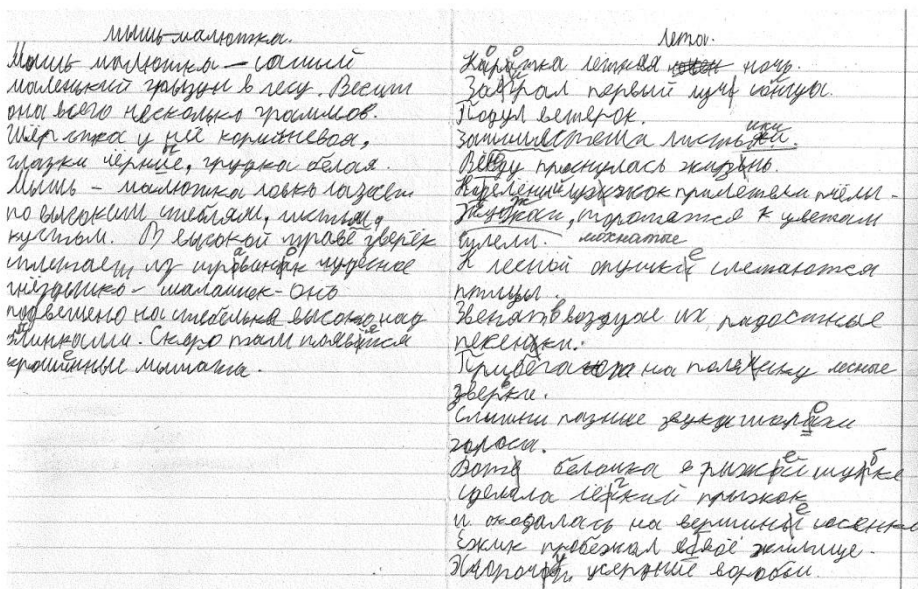 мышь-малютка.
Мышь малютка – самий
маленький грызун в лесу. Весит
она всего несколько граммов.
Шёрстка у ней коричневая,
глазки чёрние, грудка белая.
Мышь – малютка ловко лазает
по высоким стеблям, листьям,
кустам. В высокой траве зверёк
сплетает из травинок чудесное
гнёздышко – малашок – оно
подвешено на стебельке высоко над
Скоро там появятся
крошечные мышата.
лета.
Каротка летняя ночь.
Заиграл первый луч солнца.
Подул ветерок.
листьики.
Везду проснулась жизнь.
прилетели пчёлы.
Жужжа, торопятся к цветам
шмели. мохнатые
К лесной опушки слетаются
птицы.
Звенят в воздухе их радостные
песенки.
Прибегают на полянку лесные
зверки.
Слишни разние звуки шорохи
голоса.
Вот белочка в рыжей шупке
сделала лёгкий прыжок
и оказалась на вершины сосенки
Ёжик пробежал в своё жилище.
воробьи.